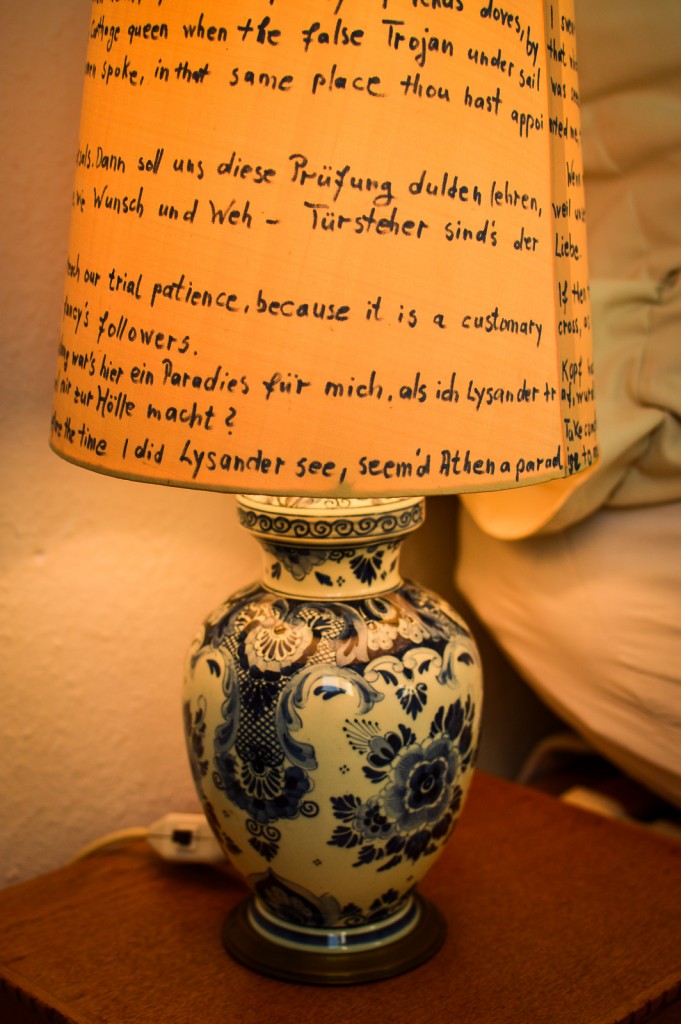 Venus doves, by I
queen when the false Trojan under sail that
spoke, in that same place thou hast appointed me,
Dann soll uns diese Prüfung dulden lehren,
Wunsch und Weh - Türsteher sind's der Liebe.
our trial patience, because it is a customary cross,
followers.
war's hier ein Paradies für mich, als ich Lysander traf,
mir zur Hölle macht?
the time I did Lysander see, seem'd Athen a paradise to